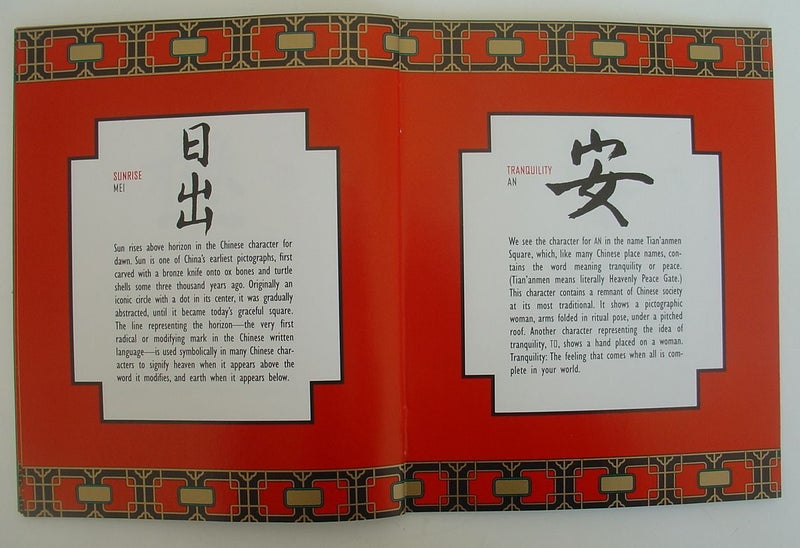 日
出
SUNRISE
MEI
Sun rises above horizon in the Chinese character for
dawn. Sun is one of China's earliest pictographs, first
carved with a bronze knife onto ox bones and turtle
shells some three thousand years ago. Originally an
iconic circle with a dot in its center, it was gradually
abstracted, until it became today's graceful square.
The line representing the horizon—the very first
radical or modifying mark in the Chinese written
language—is used symbolically in many Chinese char-
acters to signify heaven when it appears above the
word it modifies, and earth when it appears below.
安
TRANQUILITY
AN
We see the character for AN in the name Tian'anmen
Square, which, like many Chinese place names, con-
tains the word meaning tranquility or peace.
(Tian'anmen means literally Heavenly Peace Gate.)
This character contains a remnant of Chinese society
at its most traditional. It shows a pictographic
woman, arms folded in ritual pose, under a pitched
roof. Another character representing the idea of
tranquility, TO, shows a hand placed on a woman.
Tranquility: The feeling that comes when all is com-
plete in your world.